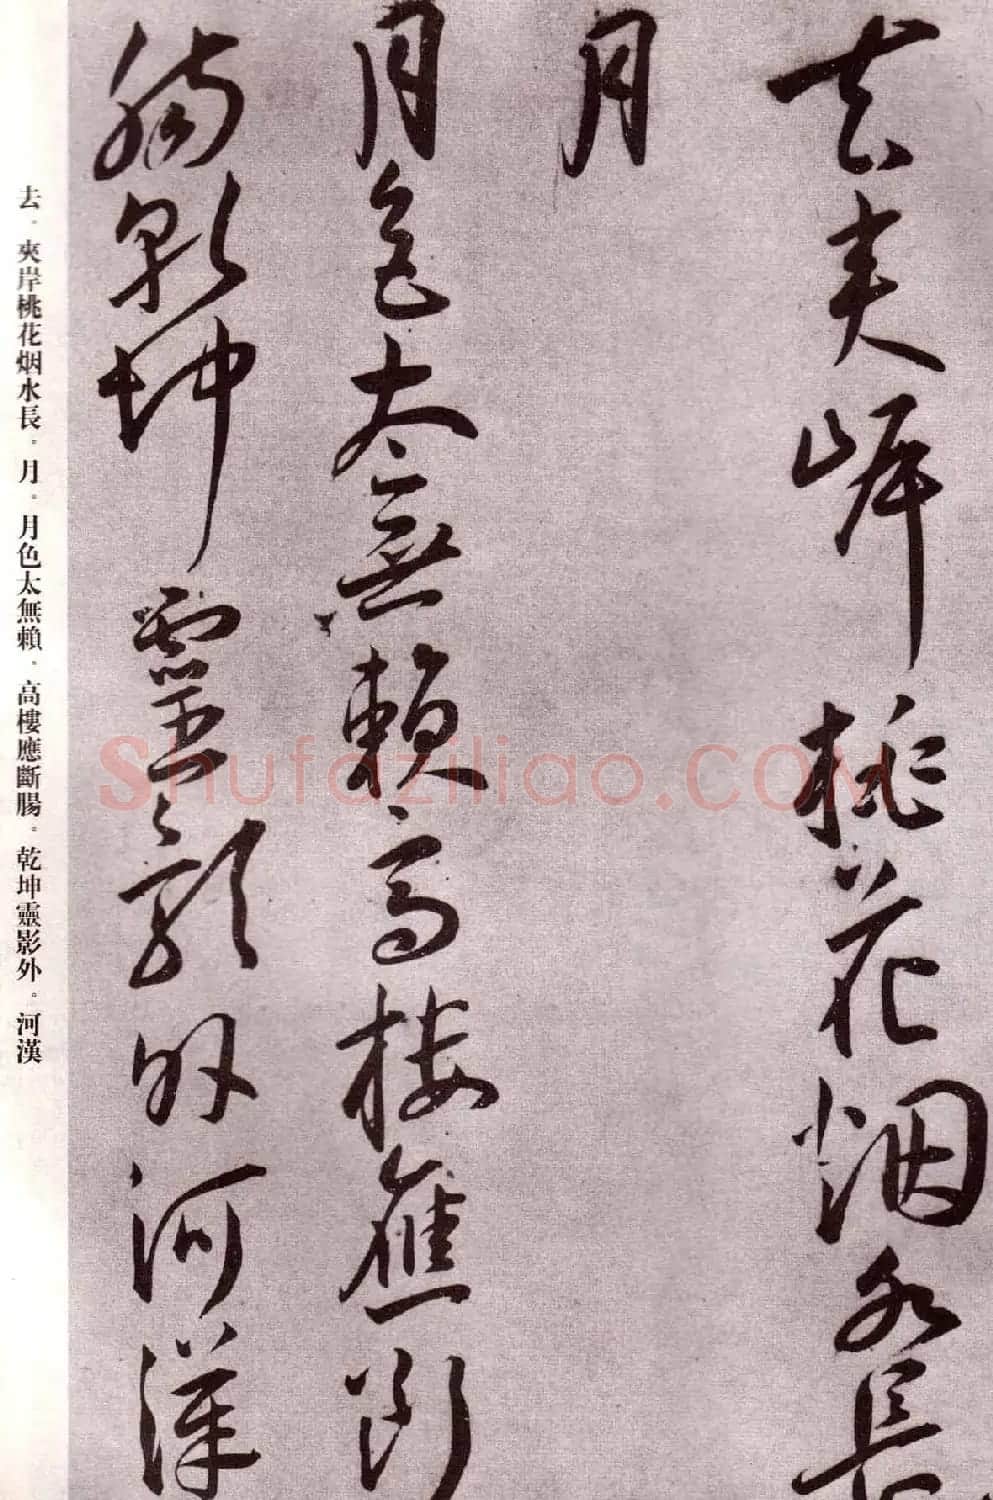 去夾岸桃花烟水長
月
月色太無賴高樓應斷
腸乾坤靈影外河漢
去。夾岸桃花烟水長。月。月色太無賴。高樓應斷腸。乾坤靈影外。河漢
Shufaziliao.COM